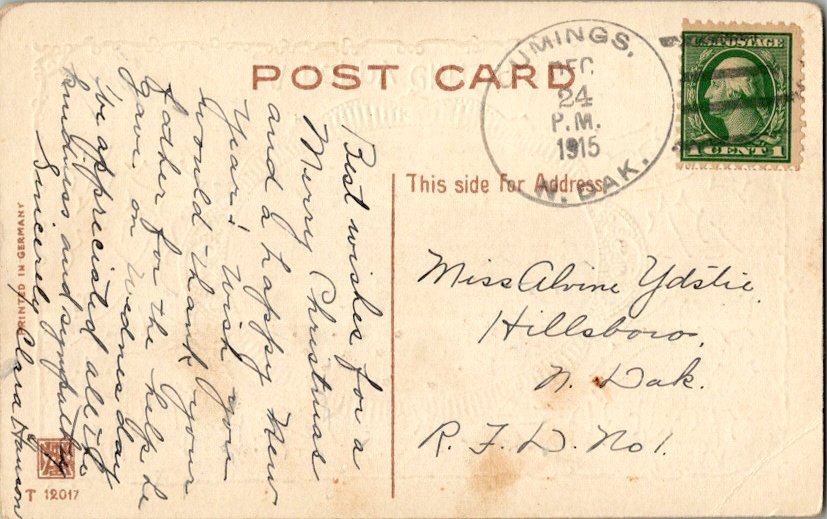 POST CARD
UMINGS,
DEC
24
P.M.
1915
N. DAK.
U.S. POSTAGE
1 CENT 1
This side for Address
Best wishes for a
Merry Christmas
and a happy New
Year. Wish you
would thank your
father for the help he
gave, on Wednesday
I've appreciated all of
kindness and sympathy
Sincerely Clara Hanson
Miss Alvine Ydstie.
Hillsboro,
N. Dak.
R. F. D. No 1.
PRINTED IN GERMANY
T 12017